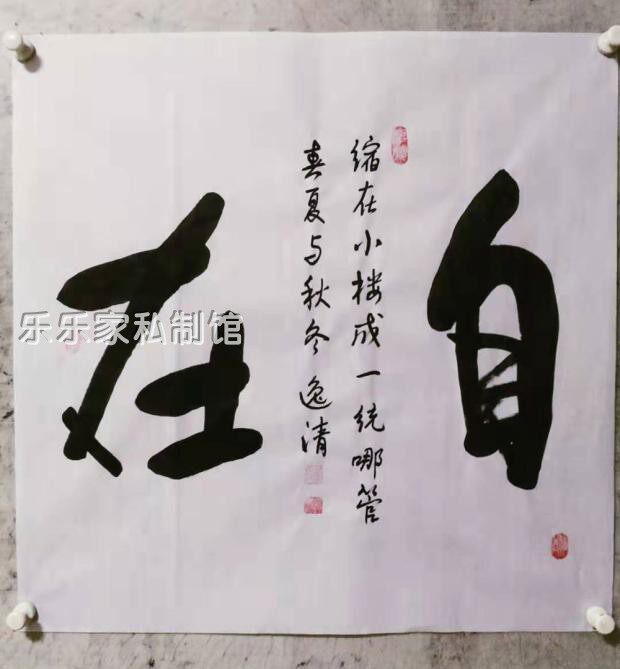 自在
缩在小楼成一统哪管
春夏与秋冬 逸清
乐乐家私制馆